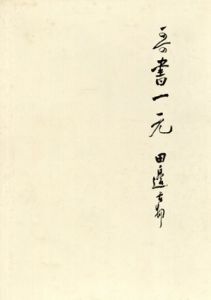 吾書一元
田邊古邨